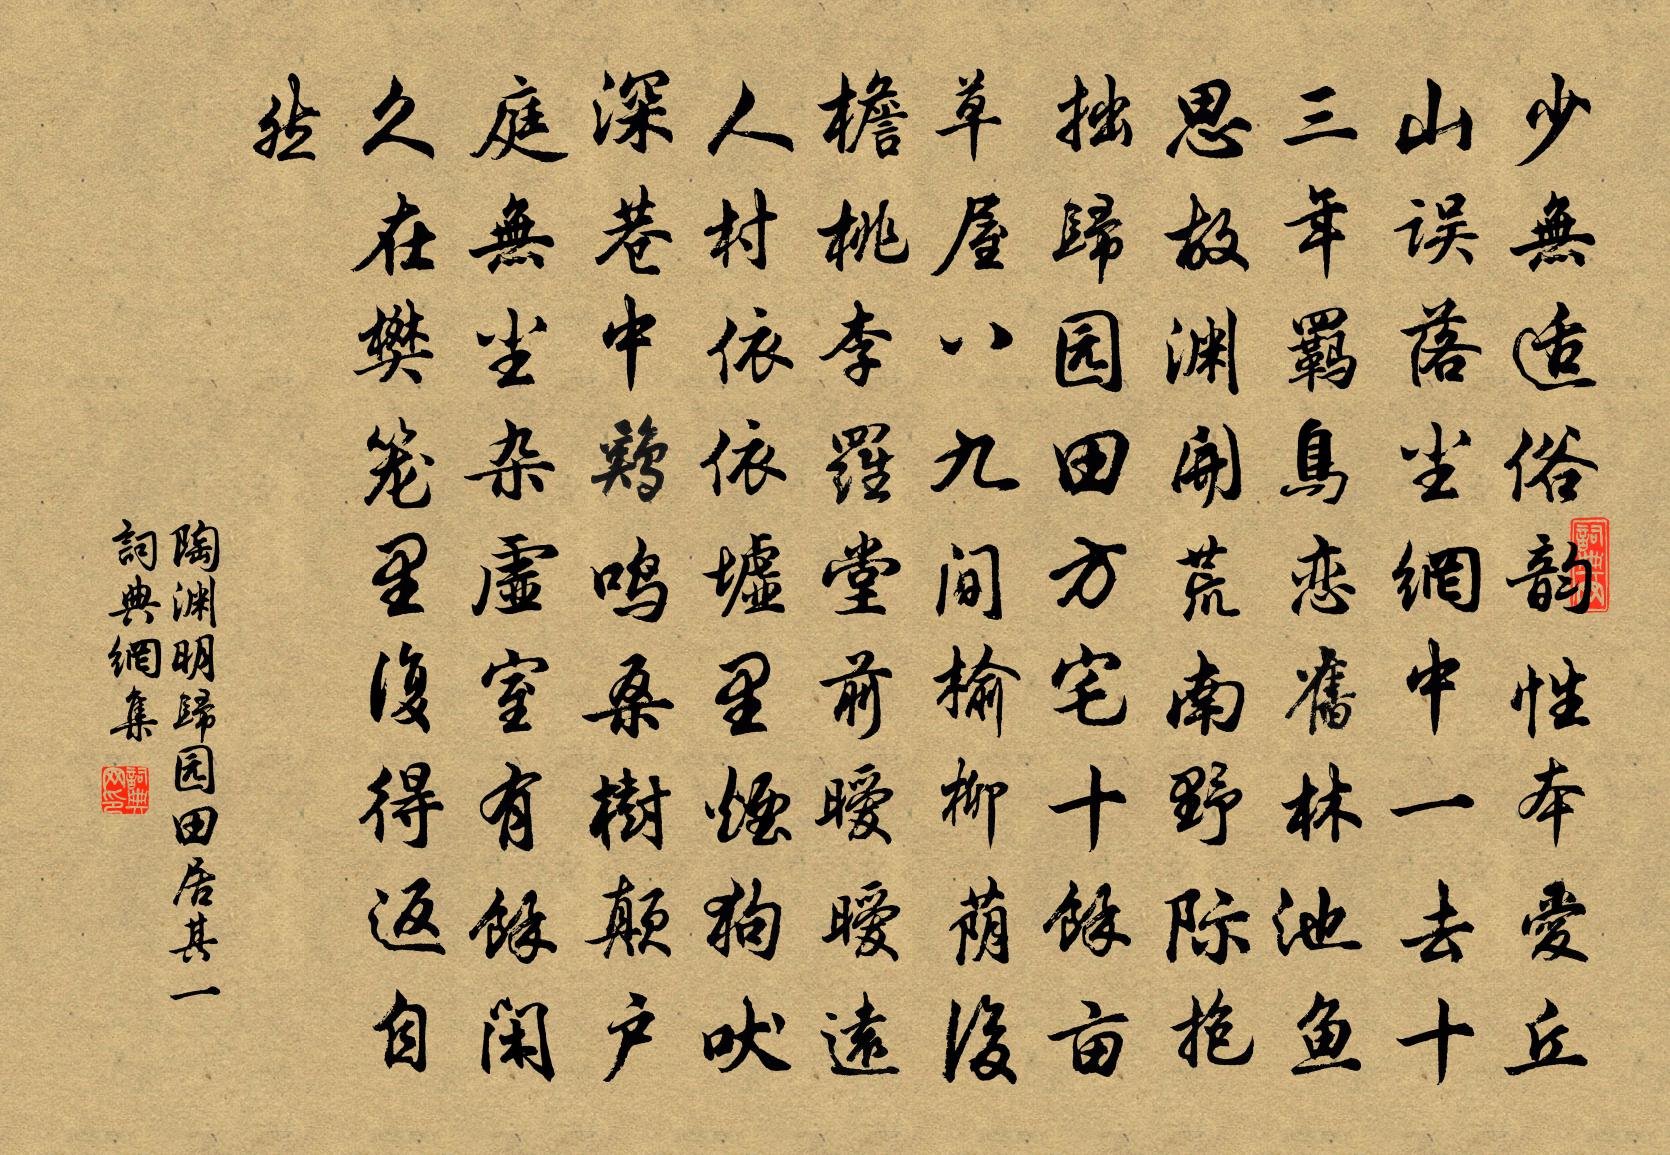 少無适俗韵性本爱丘
山误落尘網中一去十
三年羈鳥恋舊林池鱼
思故渊開荒南野际抱
拙歸园田方宅十餘亩
草屋八九间榆柳荫後
檐桃李羅堂前暧暧遠
人村依依墟里煙狗吠
深巷中鷄鸣桑樹颠户
庭無尘杂虚室有餘闲
久在樊笼里復得返自
然
陶渊明歸园田居其一
詞典網集
詞典网
詞典网印